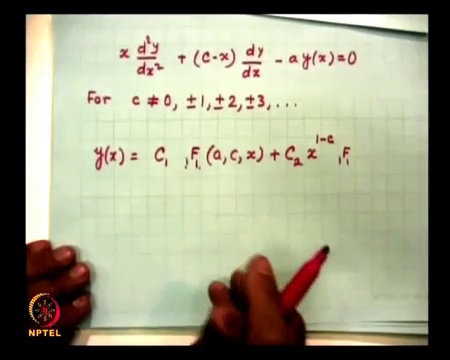 x d²y/dx² + (c-x) dy/dx - a y(x) = 0
For c ≠ 0, ±1, ±2, ±3, ...
y(x) = C₁ ₁F₁ (a, c, x) + C₂ x^{1-c} ₁F₁
NPTEL